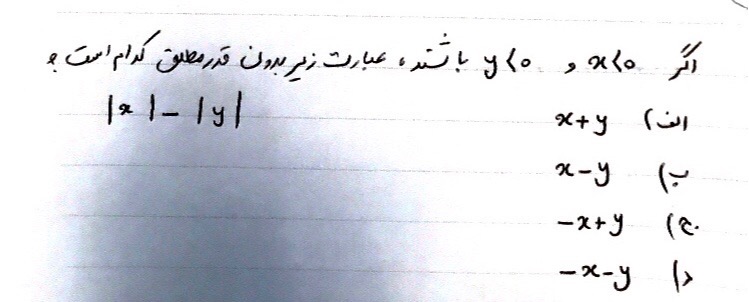 اگر x<0 و y<0 باشند، عبارت زیر بدون قدر مطلق کدام است؟
|x| - |y|
الف) x+y
ب) x-y
ج) -x+y
د) -x-y